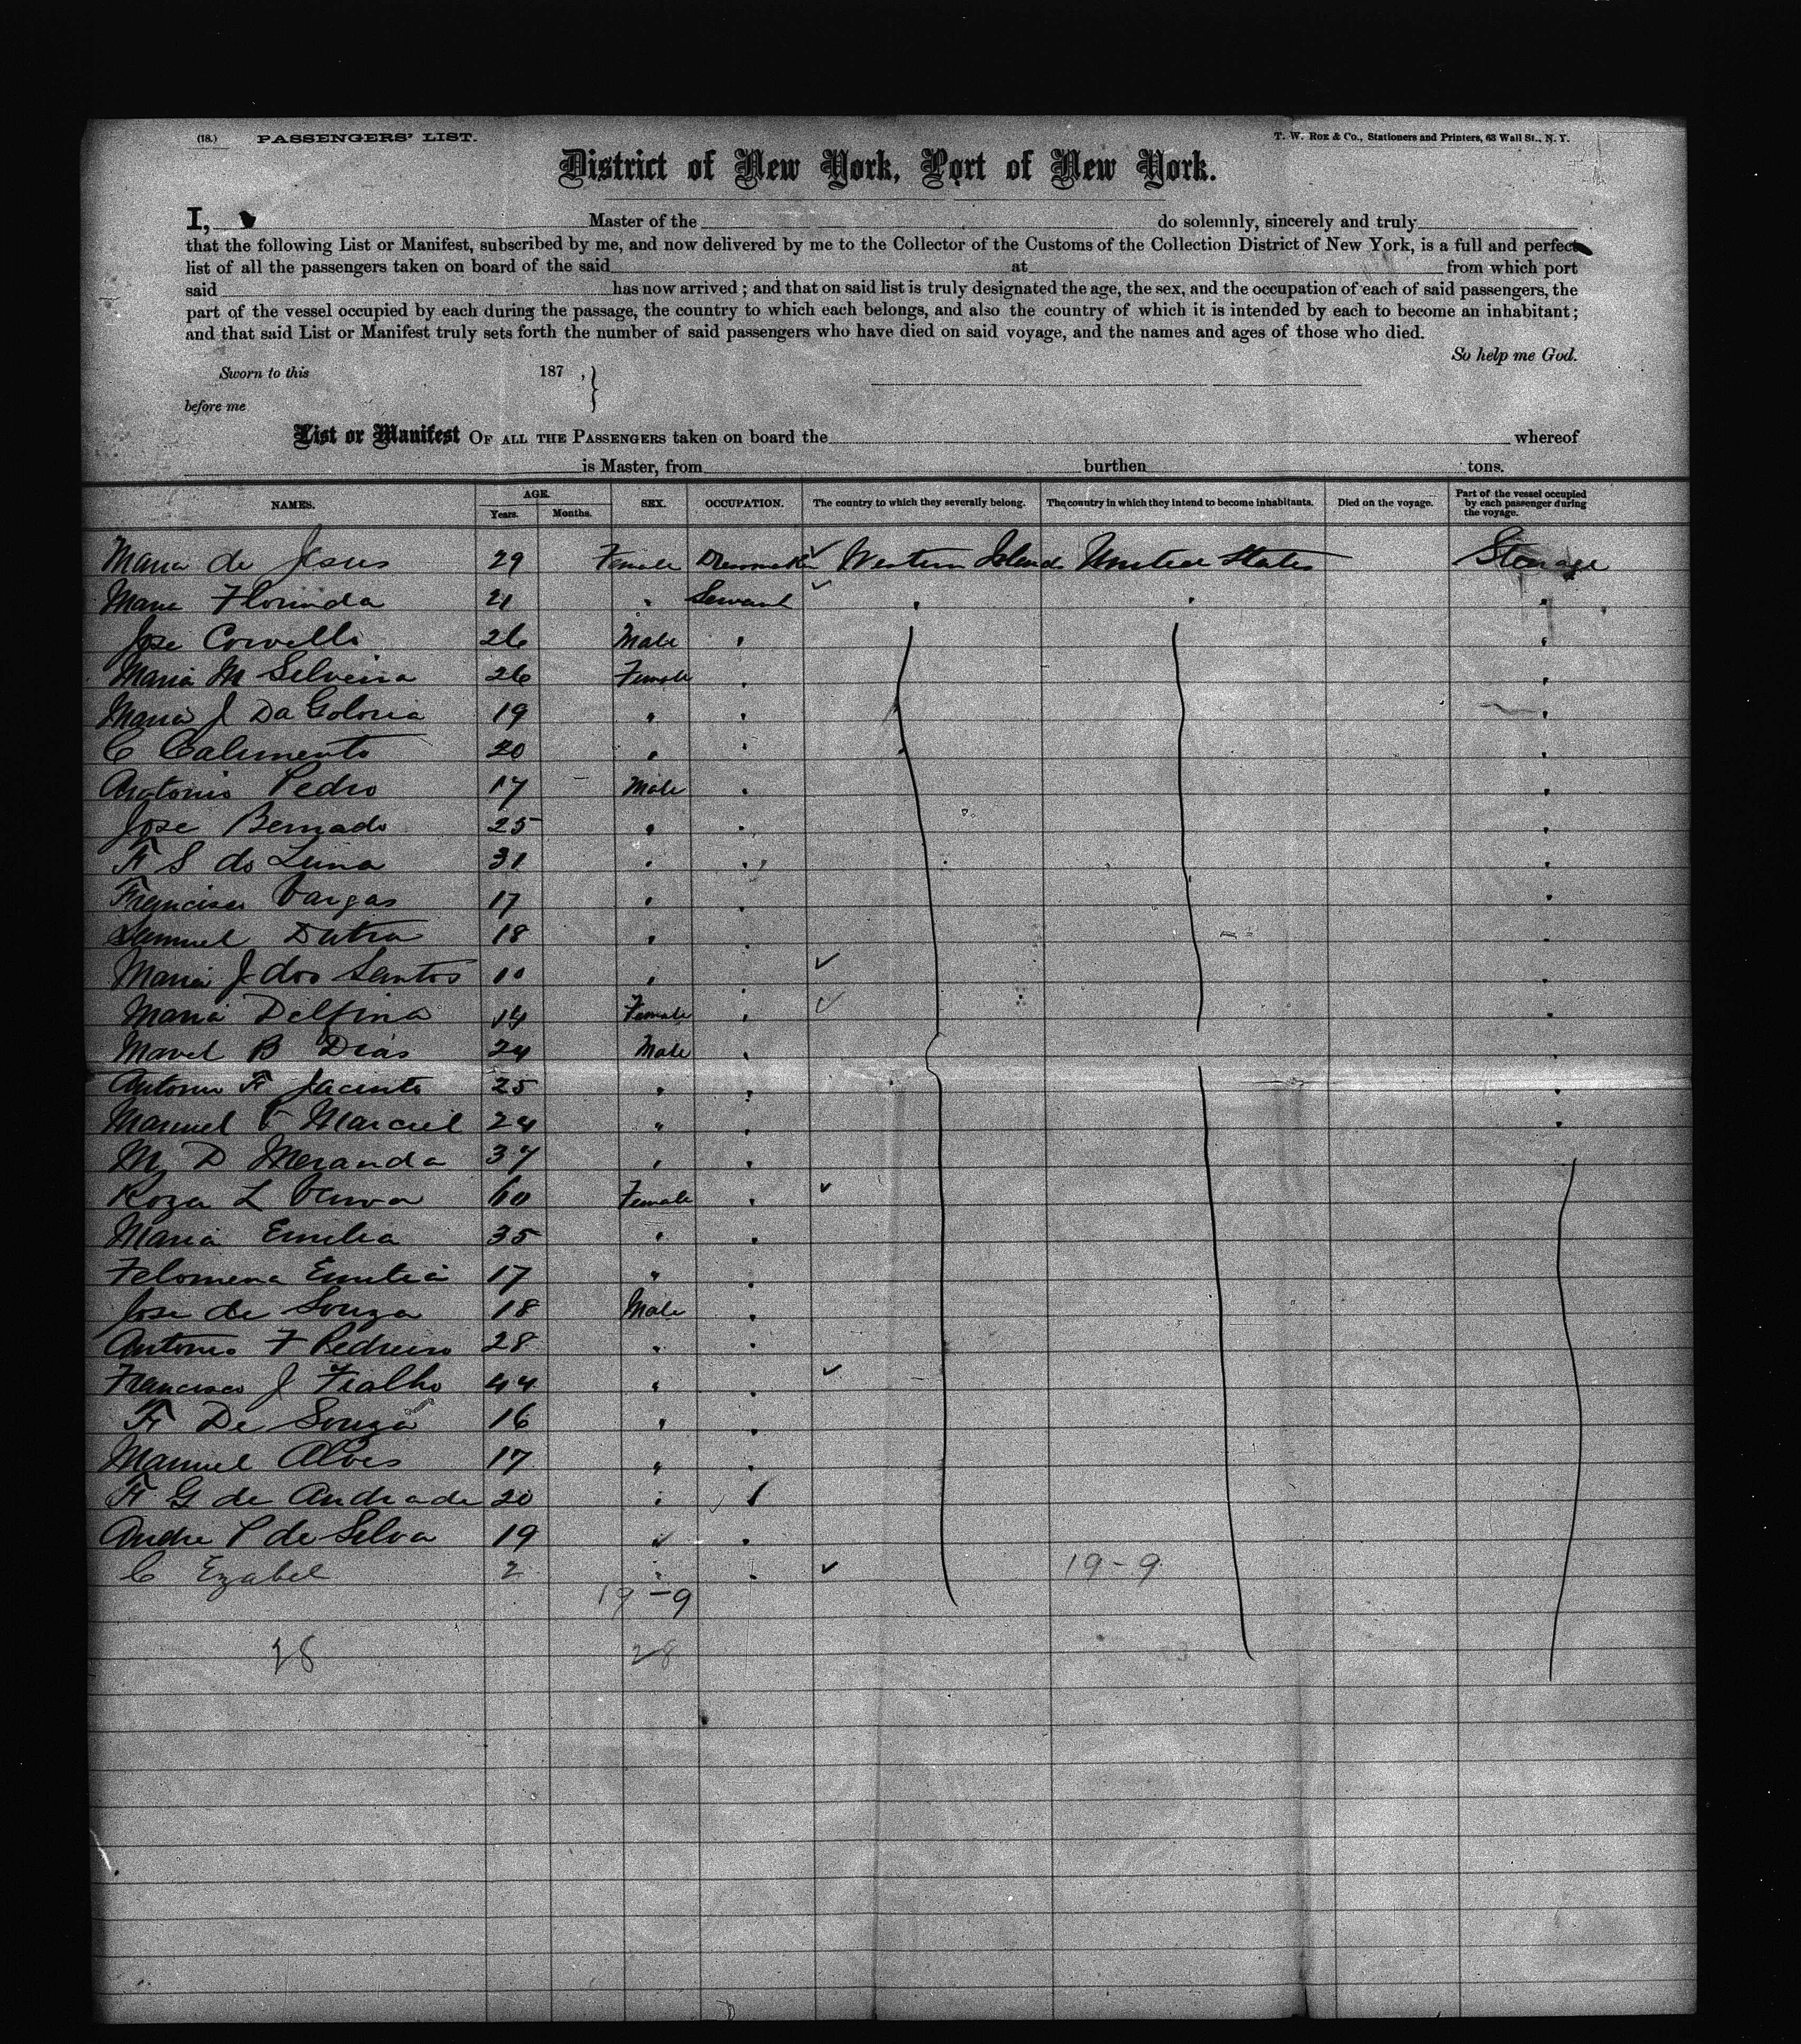 (18.) PASSENGERS' LIST. T. W. Roe & Co., Stationers and Printers, 63 Wall St., N. Y.
District of New York, Port of New York.
I, Master of the do solemnly, sincerely and truly
that the following List or Manifest, subscribed by me, and now delivered by me to the Collector of the Customs of the Collection District of New York, is a full and perfect
list of all the passengers taken on board of the said at from which port
said has now arrived; and that on said list is truly designated the age, the sex, and the occupation of each of said passengers, the
part of the vessel occupied by each during the passage, the country to which each belongs, and also the country of which it is intended by each to become an inhabitant;
and that said List or Manifest truly sets forth the number of said passengers who have died on said voyage, and the names and ages of those who died.
So help me God.
Sworn to this 187 ,
before me
List or Manifest OF ALL THE PASSENGERS taken on board the whereof
is Master, from burthen tons.
NAMES. AGE. Years. Months. SEX. OCCUPATION. The country to which they severally belong. The country in which they intend to become inhabitants. Died on the voyage. Part of the vessel occupied by each passenger during the voyage.
Maria de Jesus 29 Female Dressmaker Western Islands United States Steerage
Maria Florinda 21 " Servant " " "
Jose Corvello 26 Male " "
Maria M Silveira 26 Female " "
Maria J Da Goloria 19 " " "
C Calimento 20 " " "
Antonio Pedro 17 Male " "
Jose Bernado 25 " " "
F S do Luna 31 " " "
Francisco Vargas 17 " " "
Samuel Dutra 18 " " "
Maria J dos Santos 10 " " "
Maria Delfina 14 Female " "
Manel B Dias 24 Male " "
Antonio F Jacinto 25 " " "
Manuel V Marciel 24 " " "
M D Meranda 37 " "
Roza L 60 Female "
Maria Emilia 35 " "
Felomena Emilia 17 " "
Jose de Souza 18 Male "
Antonio F Pedreiro 28 " "
Francisco J Fialho 44 " "
F De Souza 16 " "
Manuel Alves 17 " "
F G de Andrade 20 " "
Andre P de Silva 19 " "
C Ezabel 2 " " 19-9
19-9
28 28